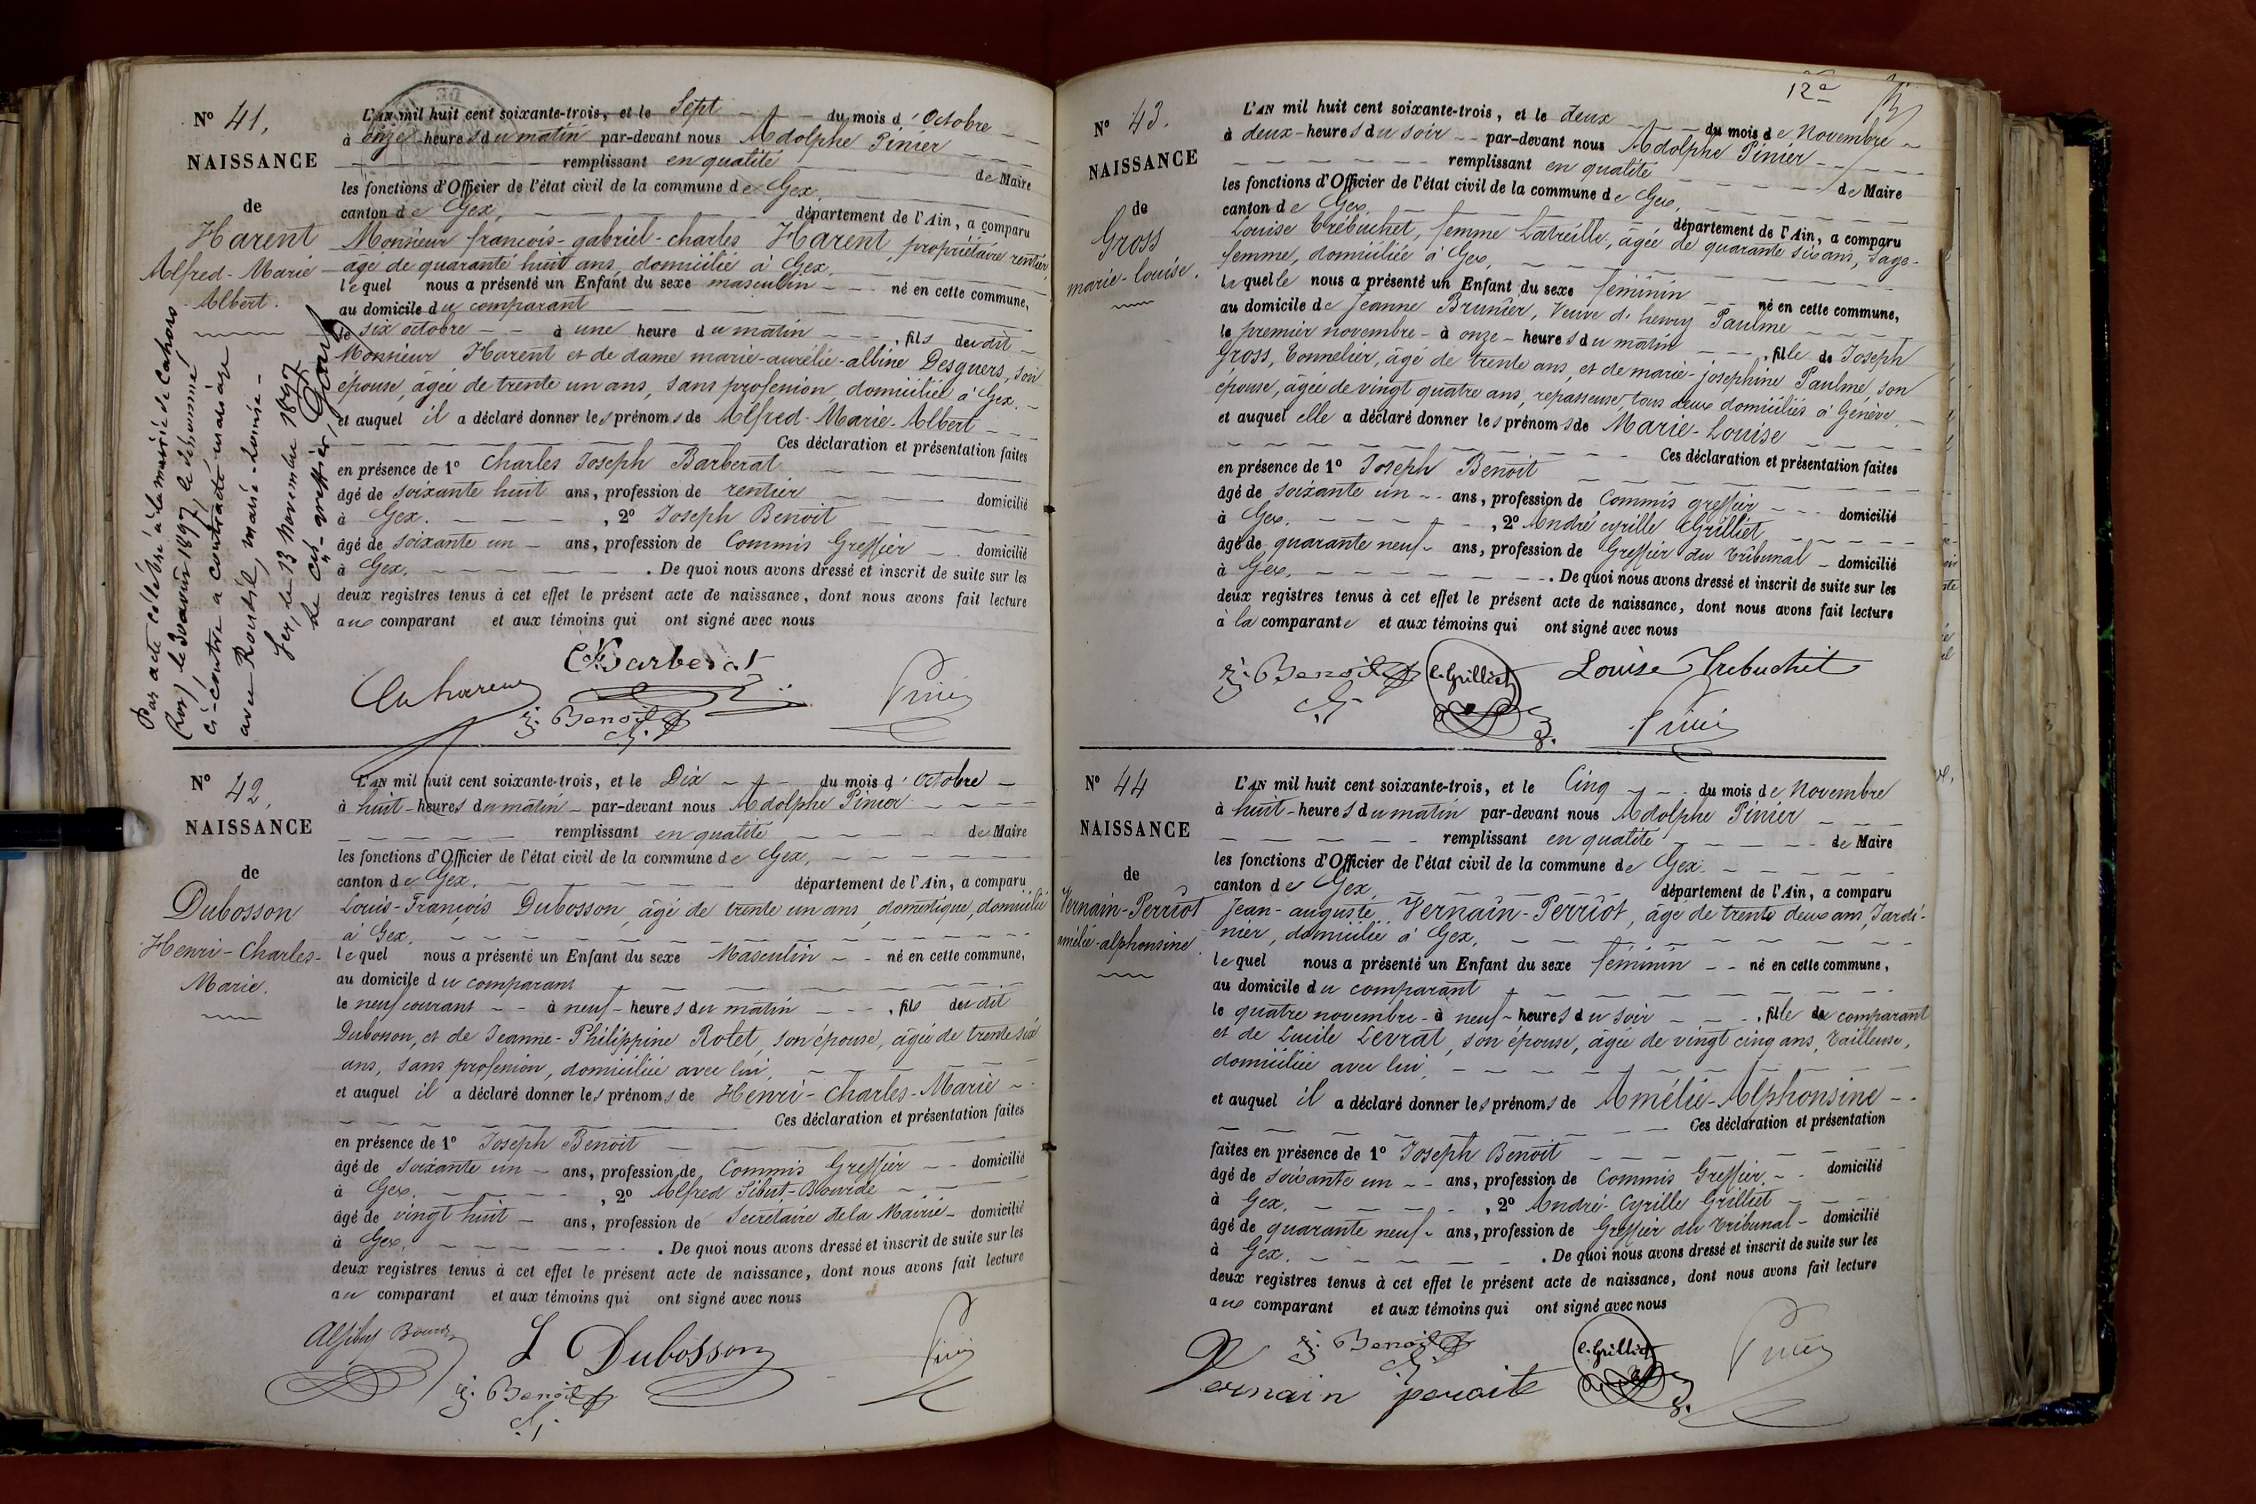 N° 41.
NAISSANCE
de
Harent
Alfred-Marie
Albert.
Par acte célébré à la mairie de Cahors
(Lot) le 30 1897, le dénommé
ci-contre a contracté mariage
avec marie-Louise-
Gex, le 13 Novembre 1897
Le greffier,
L'AN mil huit cent soixante-trois, et le Sept du mois d'Octobre
à onze heures du matin par-devant nous Adolphe Pinier
remplissant en qualité de Maire
les fonctions d'Officier de l'état civil de la commune de Gex,
canton de Gex, département de l'Ain, a comparu
Monsieur françois-gabriel-charles Harent, propriétaire rentier,
âgé de quarante huit ans, domicilié à Gex,
lequel nous a présenté un Enfant du sexe masculin né en cette commune,
au domicile du comparant
le six octobre à une heure du matin, fils dudit
Monsieur Harent et de dame marie-aurélie-albine Desguers, son
épouse, âgée de trente un ans, sans profession, domiciliée à Gex.
et auquel il a déclaré donner les prénoms de Alfred-Marie-Albert
Ces déclaration et présentation faites
en présence de 1° Charles Joseph Barberat
âgé de soixante huit ans, profession de rentier domicilié
à Gex. , 2° Joseph Benoit
âgé de soixante un ans, profession de Commis Greffier domicilié
à Gex. . De quoi nous avons dressé et inscrit de suite sur les
deux registres tenus à cet effet le présent acte de naissance, dont nous avons fait lecture
aux comparant et aux témoins qui ont signé avec nous
Barberat
Ch harent
J. Benoit
Pinier
N° 42.
NAISSANCE
de
Dubosson
Henri-Charles-
Marie.
L'AN mil huit cent soixante-trois, et le Dix du mois d'Octobre
à huit heures du matin par-devant nous Adolphe Pinier
remplissant en qualité de Maire
les fonctions d'Officier de l'état civil de la commune de Gex,
canton de Gex, département de l'Ain, a comparu
Louis-François Dubosson, âgé de trente un ans, domestique, domicilié
à Gex,
lequel nous a présenté un Enfant du sexe Masculin né en cette commune,
au domicile du comparant
le neuf courant à neuf heures du matin, fils dudit
Dubosson, et de Jeanne-Philippine Rolet, son épouse, âgée de trente six
ans, sans profession, domiciliée avec lui,
et auquel il a déclaré donner les prénoms de Henri-Charles-Marie
Ces déclaration et présentation faites
en présence de 1° Joseph Benoit
âgé de soixante un ans, profession de Commis Greffier domicilié
à Gex. , 2° Alfred Sibut-Bourde
âgé de vingt huit ans, profession de Secrétaire de la Mairie domicilié
à Gex. . De quoi nous avons dressé et inscrit de suite sur les
deux registres tenus à cet effet le présent acte de naissance, dont nous avons fait lecture
au comparant et aux témoins qui ont signé avec nous
L Dubosson
J. Benoit
Pinier
12e
N° 43.
NAISSANCE
de
Gross
marie-louise.
L'AN mil huit cent soixante-trois, et le deux du mois de Novembre
à deux heures du soir par-devant nous Adolphe Pinier
remplissant en qualité de Maire
les fonctions d'Officier de l'état civil de la commune de Gex,
canton de Gex, département de l'Ain, a comparu
Louise Trébuchet, femme Latreille, âgée de quarante six ans, sage-
femme, domiciliée à Gex,
laquelle nous a présenté un Enfant du sexe féminin né en cette commune,
au domicile de Jeanne Brunier, Veuve d'henry Paulme
le premier novembre à onze heures du matin, fille de Joseph
Gross, Tonnelier, âgé de trente ans, et de marie-josephine Paulme, son
épouse, âgée de vingt quatre ans, repasseuse, tous deux domiciliés à Genève,
et auquel elle a déclaré donner les prénoms de Marie-Louise
Ces déclaration et présentation faites
en présence de 1° Joseph Benoit
âgé de soixante un ans, profession de Commis greffier domicilié
à Gex. , 2° André cyrille Grilliet
âgé de quarante neuf ans, profession de Greffier du Tribunal domicilié
à Gex. . De quoi nous avons dressé et inscrit de suite sur les
deux registres tenus à cet effet le présent acte de naissance, dont nous avons fait lecture
à la comparante et aux témoins qui ont signé avec nous
J. Benoit
C. Grilliet
Louise Trebuchet
Pinier
N° 44
NAISSANCE
de
Vernain-Perriot
amélie-alphonsine
L'AN mil huit cent soixante-trois, et le Cinq du mois de Novembre
à huit heures du matin par-devant nous Adolphe Pinier
remplissant en qualité de Maire
les fonctions d'Officier de l'état civil de la commune de Gex.
canton de Gex département de l'Ain, a comparu
Jean-auguste Vernain-Perriot, âgé de trente deux ans, Jardi-
nier, domicilié à Gex,
lequel nous a présenté un Enfant du sexe féminin né en cette commune,
au domicile du comparant
le quatre novembre à neuf heures du soir, fille du comparant
et de Lucile Levrat, son épouse, âgée de vingt cinq ans, Tailleuse,
domiciliée avec lui,
et auquel il a déclaré donner les prénoms de Amélie-Alphonsine
Ces déclaration et présentation
faites en présence de 1° Joseph Benoit
âgé de soixante un ans, profession de Commis Greffier domicilié
à Gex. , 2° André-Cyrille Grilliet
âgé de quarante neuf ans, profession de Greffier du Tribunal domicilié
à Gex. . De quoi nous avons dressé et inscrit de suite sur les
deux registres tenus à cet effet le présent acte de naissance, dont nous avons fait lecture
aux comparant et aux témoins qui ont signé avec nous
J. Benoit
C. Grilliet
Vernain peroite
Pinier